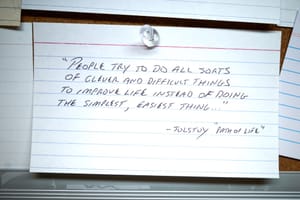 "PEOPLE TRY TO DO ALL SORTS
OF CLEVER AND DIFFICULT THINGS
TO IMPROVE LIFE INSTEAD OF DOING
THE SIMPLEST, EASIEST THING..."
- TOLSTOY "PATH OF LIFE"